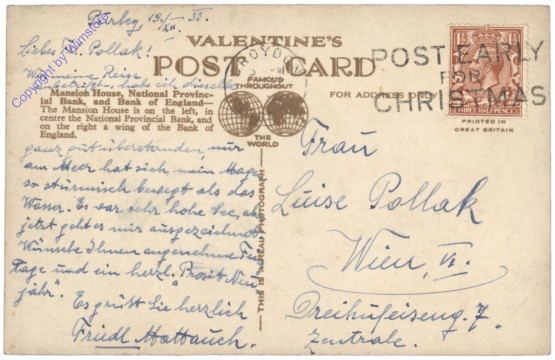 Purley 19/XII. 33.
Liebes Frl. Pollak!
VALENTINE'S
POST CARD
FAMOUS
THROUGHOUT
THE
WORLD
FOR ADDRESS ONLY
CROYDON
POST EARLY
FOR
CHRISTMAS
THREE HALF PENCE
PRINTED IN
GREAT BRITAIN
meine Reise
habe ich
Mansion House, National Provincial
Bank, and Bank of England—
The Mansion House is on the left, in
centre the National Provincial Bank, and
on the right a wing of the Bank of
England.
ganz gut überstanden, nur
am Meer hat sich mein Magen
so stürmisch bewegt als das
Wasser. Es war sehr hohe See, aber
jetzt geht es mir ausgezeichnet
Wünsche Ihnen angenehme Fei-
tage und ein herzl. "Prosit Neu-
jahr". Es grüßt Sie herzlich
Friedl Hattauch.
THIS IS A REAL PHOTOGRAPH
Frau
Luise Pollak
Wien, VI.
Dreihufeiseng. 7
Zentrale.
www.Wimstore.at